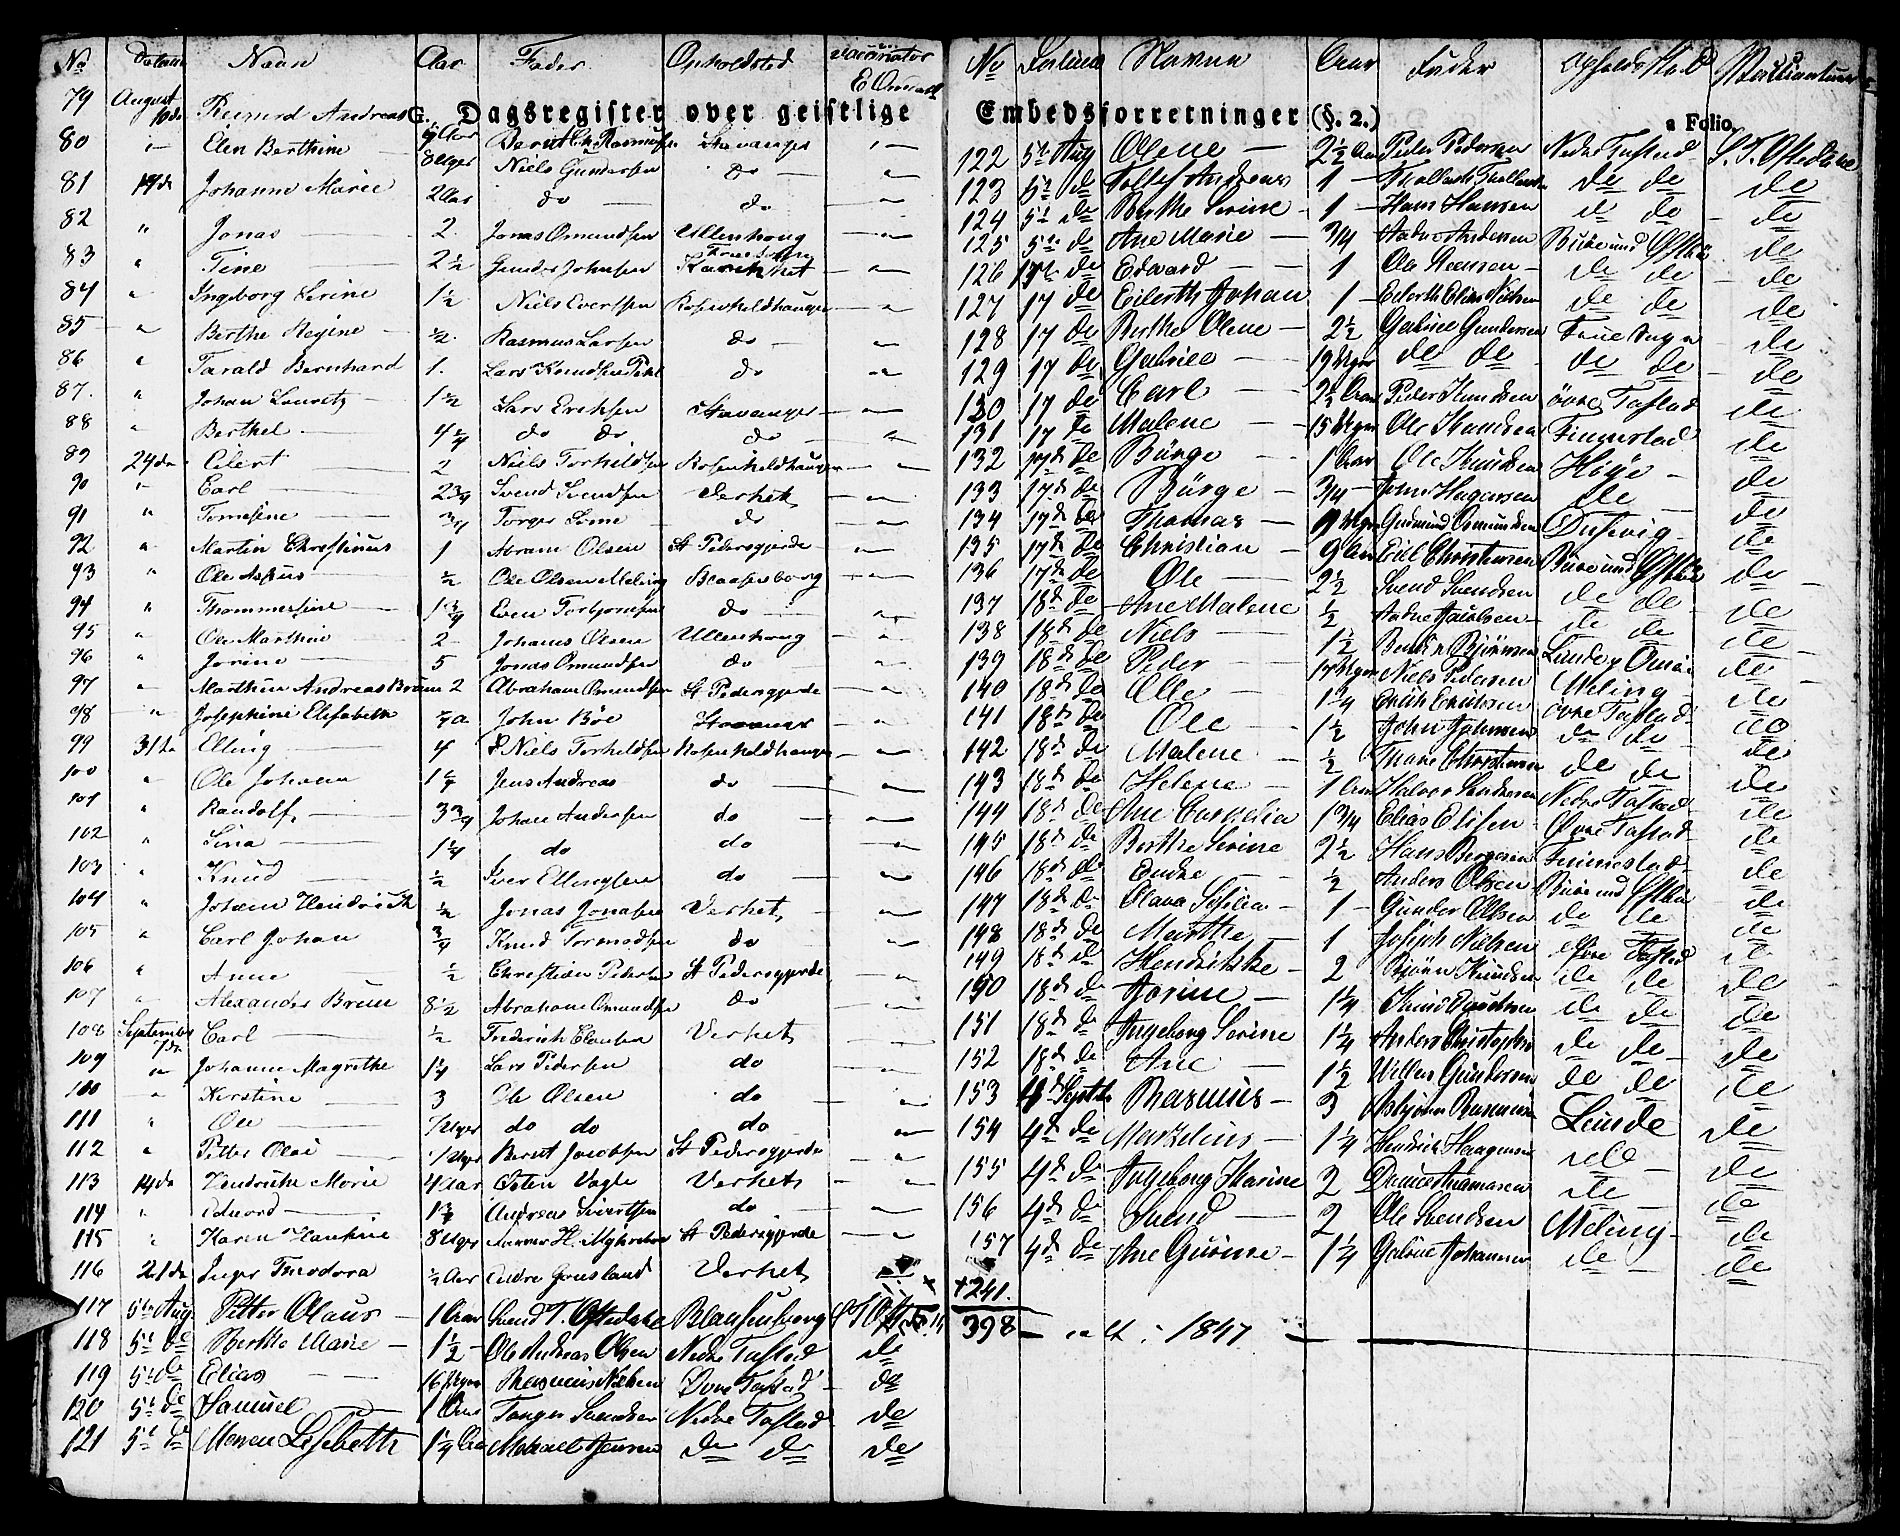 No Datum Navn Aar Fader Opholdsted Vaccinator
G. Dagsregister over geistlige
79 August 10de Reinerd Andreas 9 Aar Berut Chr. Rasmusen Stavanger
80 " Elen Berthine 8 Uger Niels Gundersen do
81 17de Johanne Marie 2 Aar do do
82 " Jonas 2 Jonas Omundsen Ullenhoug
83 " Tine 2 1/2 Gunder Johnsen
84 " Ingeborg Serine 1 1/2 Niels Evertsen Rosenkildhaugen
85 " Berthe Regine 1/2 Rasmus Larsen do
86 " Tarald Bernhard 1 Lars Knudsen do
87 " Johan Lauretz 1 1/2 Lars Eriksen Stavanger
88 " Berthel 4 1/4 do do do
89 24de Eilert 2 Niels Torkildsen Rosenkildhaugen
90 " Carl 2 3/4 Svend Svendsen Verket
91 " Tomesine 3/4 Torger Somme do
92 " Martin Chrestinus 1 Abram Olsen St Pedersgjerde
93 " Ole Askus 1/2 Ole Olsen Meling Blaasenborg
94 " Thommesine 1 3/4 Even Torbjornsen do
95 " Ole Marthin 2 Johanes Olsen Ullenhoug
96 " Jorine 5 Jonas Omundsen do
97 " Marthin Andreas Bruun 2 Abraham Omundsen St Pedersgjerde
98 " Josephine Elisabeth John Böe Stavanger
99 31te Elling 4 Niels Torkeldsen Rosenkildhaugen
100 " Ole Johan 1 1/4 Jens Andreas do
101 " Randolf 3 3/4 Johan Andersen do
102 " Sina 1 1/4 do do
103 " Knud 1/2 Iver Ellingsen do
104 " Johan Hendrich 1/2 Jonas Jonasen Verket
105 " Carl Johan 3/4 Knud Tormodsen do
106 " Anne 1/2 Christian Pedersen St Pedersgjerde
107 " Alexander Bruun 8 1/2 Abraham Omundsen do
108 September 7de Carl 1/2 Frederich Clausen Verket
109 " Johanne Magrethe 1 1/4 Lars Pedersen do
100 " Kerstine 3 Ole Olsen do
111 " Ole Uger do do do
112 " Petter Olai Uger Bernt Jacobsen St Pedersgjerde
113 14de Hendrikke Marie 4 Aar Osten Vagle Verket
114 " Edvard 1 3/4 Andreas Sivertsen do
115 " Karen Hansine 8 Uger St Pedersgjerde
116 21de Inger Theodora 1/2 Aar Endre Gousland Verket
117 5te Aug Petter Olaus 1 Aar Svend T. Oftedahl Blaasenborg
118 5te de Berthe Marie 1 1/2 Ole Andreas Olsen Nedre Tasted de
119 5te de Elias 16 Uger Rasmus Nielsen Övre Tasted de
120 5te de Samuel 1 Aar Tonges Svendsen Nedre Tasted de
121 5te de Maren Lisebeth 1 1/4 Aar Michael Jensen de de de
No Datum Navne Aar Fader Opholds Sted Vaccinateur
Embedsforretninger (§. 2.) a Folio.
122 5te Aug Olene 2 1/2 Aar Peder Pedersen Nedre Tasted S. T. Oftedahl
123 5te de Tollef Andreas 1 de de de
124 5te de Berthe Serine 1 Hans Hansen de de de
125 5te de Ane Marie 3/4 Anders Andersen Buöe de
126 17de de Edvard 1 Ole Steensen de de de
127 17 de Eilerth Johan 1 Eilerth Elias Nielsen de de de
128 17 de Berthe Olene 2 1/2 Gabriel Gundersen de
129 17 de Gabriel 19 Uger de de de de de
130 17 de Carl 2 1/2 Aar Peder Knudsen övre Tasted de
131 17 de Malene 15 Uger Ole Knudsen Finnestad de
132 17de de Börge 1 Aar Ole Knudsen Höye de
133 17de de Börge 3/4 John Hagensen de de
134 17de de Thomas 9 Uger Gudmund Osmundsen Dusevig de
135 17de de Christian 9 Aar Eill Christensen Buöe de
136 17de de Ole 2 1/2 Svend Svendsen de de de
137 18de de Ane Malene 1/2 Andrea Jacobsen de de de
138 18de de Niels 1 1/2 Bendix Björnsen Lunde de
139 18de de Peder 14 Uger Niels Pedersen Meling de
140 18de de Olle 1 1/4 Erich Erichsen övre Tasted de
141 18de de Ole 1 1/2 John Johnsen de de de
142 18de de Malene 1/2 Thore Christensen de de de
143 18de de Helene 1 Aar Halvor Nedre Tasted de
144 18de de Ane Cornelia 1 3/4 Elias Elisen Övre Tasted de
145 18de de Berthe Serine 2 1/2 Hans Börgesen Finnestad de
146 18de de Endre 1/2 Anders Olsen Buöe de
147 18de de Olava Sesilia 1 Gunder Olsen de de de
148 18de de Marthe 1 Joseph Nielsen Övre Tasted de
149 18de de Hendrikke 2 Björn Knudsen de de de
150 18de de Jorine 1 1/4 Knud de de de
151 18de de Ingeborg Serine 1 1/4 Anders de de de
152 18de de Ane 1 1/2 Villum Gundersen de de de
153 4de Septbr Rasmus 3 Asbjörn Rasmusen Lunde de
154 4de de Markelius 1 1/4 Hendrich Haagensen de de
155 4de de Ingeborg Karine 2 de de
156 4de de Svend 2 Ole Svendsen Meling de
157 4de de Ane Gurine 1 1/4 Gabriel Johannesen de de
+241.
398 1847